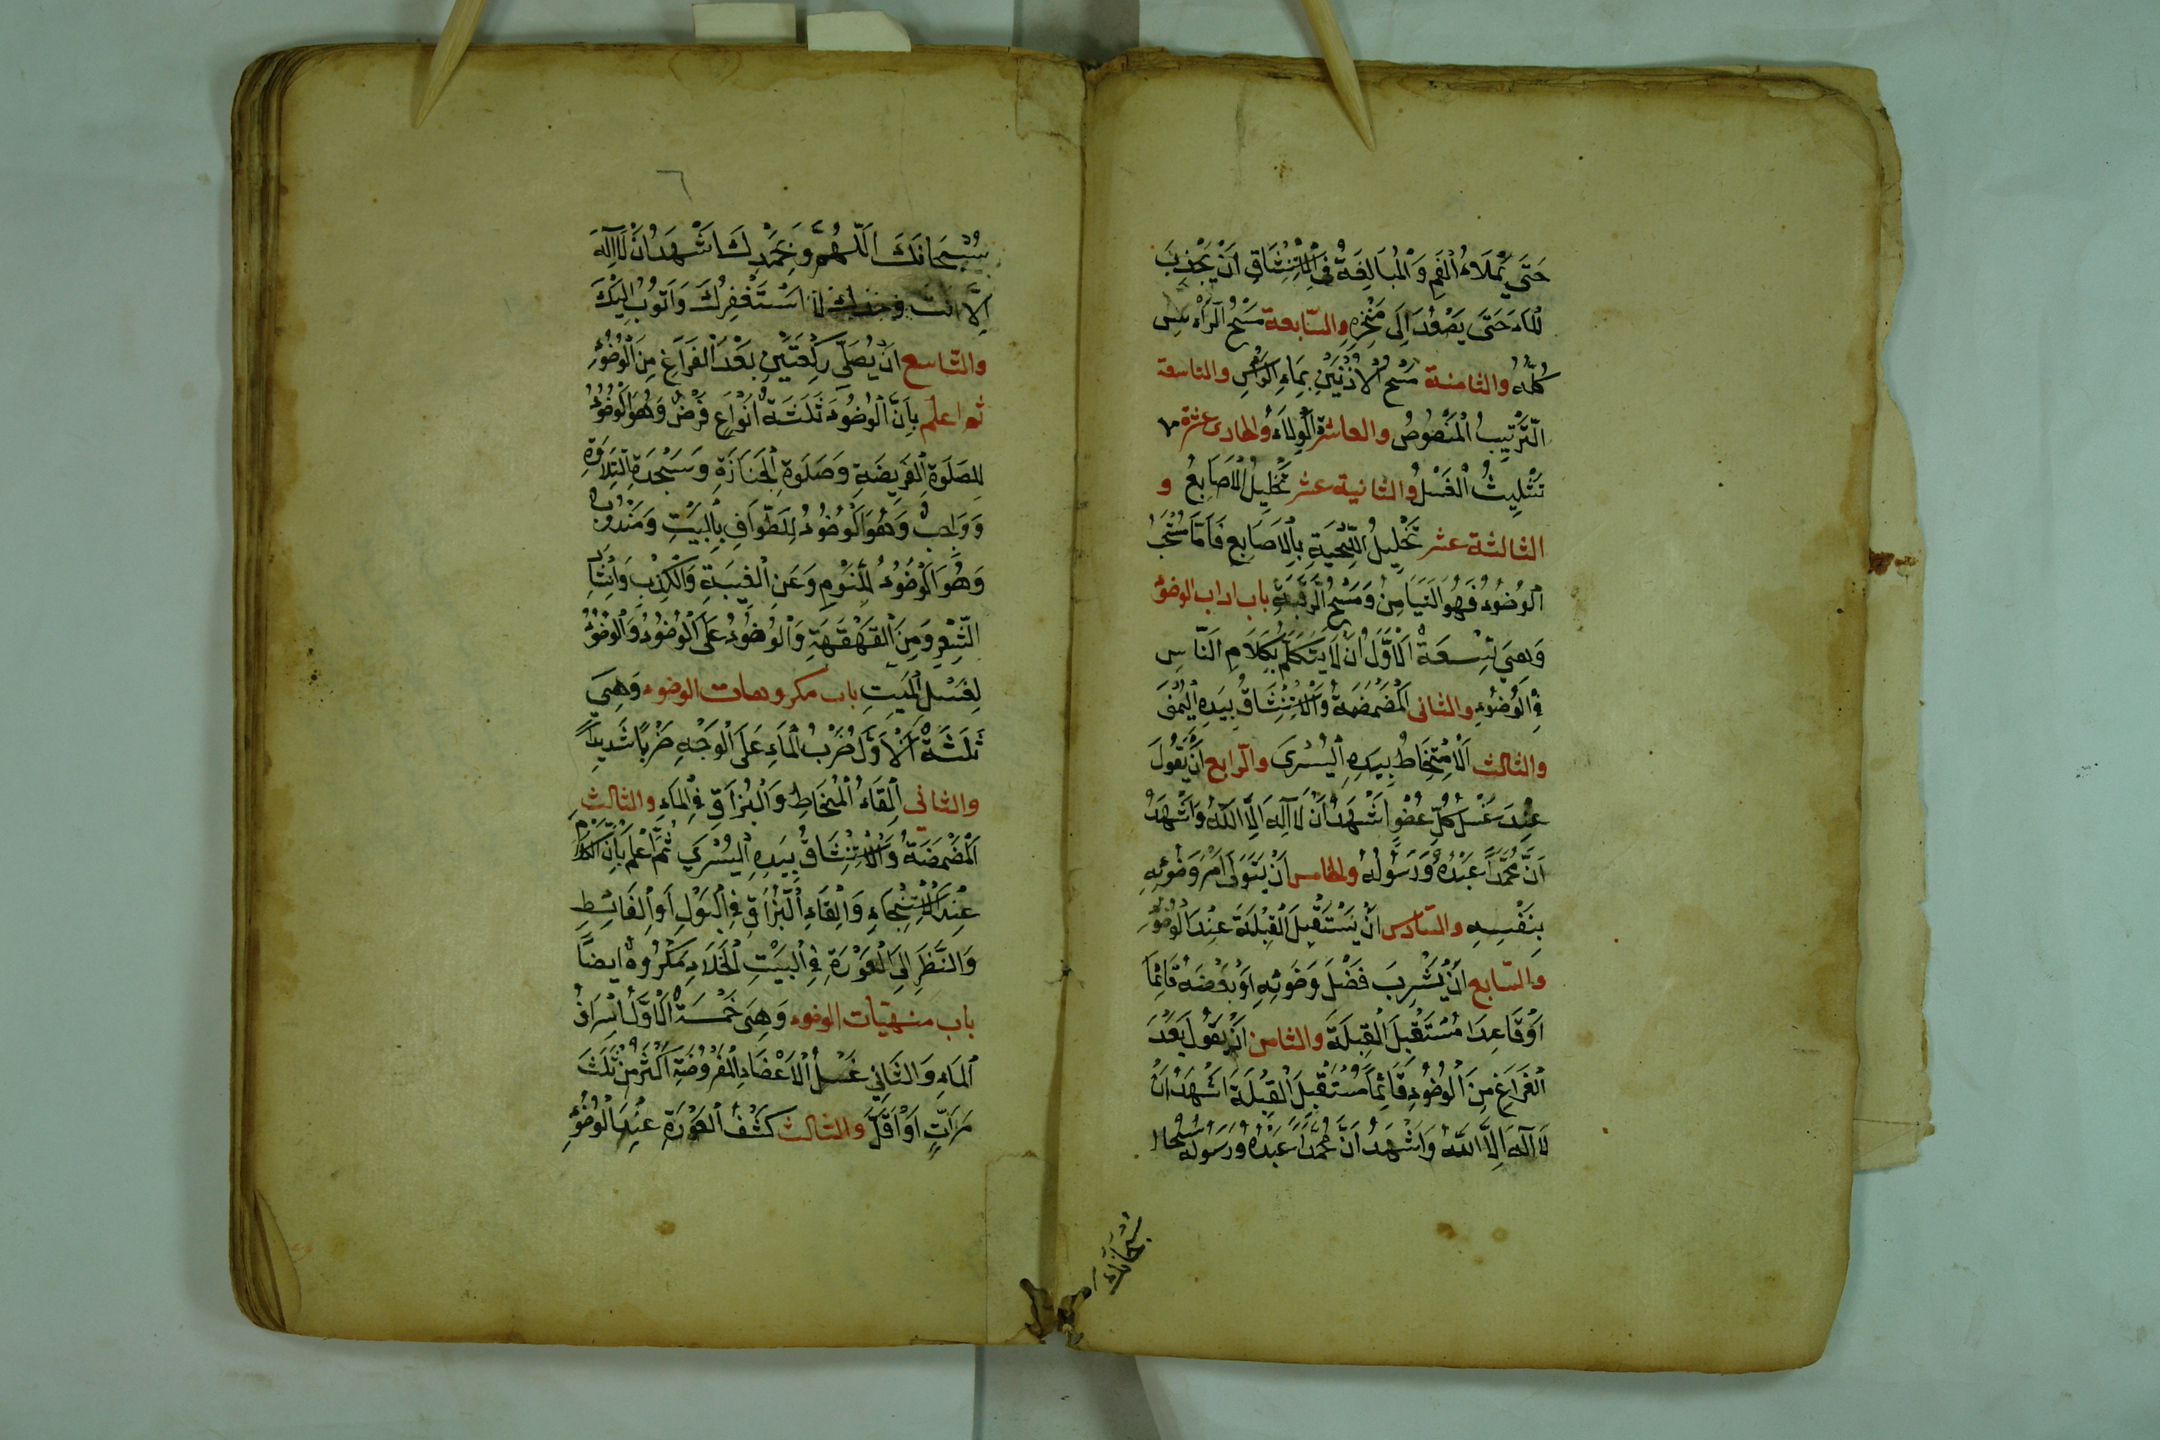 حَتَّى يَمْلَاءَ الْفَمَ وَالْمُبَالِغَةُ فِي الْاِسْتِنْشَاقِ اَنْ يَجْذِبَ
الْمَاءَ حَتَّى يَصْعُدَ اِلَى مَنْخِرِهِ والسّابعة مَسْحُ الرَّاْءسِ
كُلِّهِ والثامنة مَسْحُ الْاُذُنَيْنِ بِمَاءِ الرَّاْسِ والتاسعة
التَّرْتِيبُ الْمَنْصُوصُ والعاشرة الْوِلَاءُ والحادى عشرة
تَثْلِيثُ الْغَسْلِ والثانية عشر تَخْلِيلُ الْاَصَابِعُ و
الثالثة عشر تَخْلِيلُ اللِّحْيَةِ بِالْاَصَابِعِ فَاَمَّا مُسْتَحَبُّ
الْوُضُوءُ فَهُوَ التَّيَامِنُ وَمَسْحُ الرَّقَبَةِ باب اداب الوضؤ
وَهِىَ تِسْعَةٌ الْاَوَّلُ اَنْ لَا يَتَكَلَّمَ بِكَلَامِ النَّاسِ
فِي الْوُضُوءِ والثانى اَلْمَضْمَضَةُ وَالْاِسْتِنْشَاقُ بِيَدِهِ الْيُمْنَى
والثالث اَلْاِمْتِخَاطُ بِيَدِهِ الْيُسْرَى والرابع اَنْ يَقُولَ
عِنْدَ غَسْلِ كُلِّ عُضْوٍ اَشْهَدُ اَنْ لَا اِلَهَ اِلَّا اللّٰهُ وَاَشْهَدُ
اَنَّ مُحَمَّداً عَبْدُهُ وَرَسُولُهُ والخامس اَنْ يَتَوَلَّى اَمْرَ وَضُوئِهِ
بِنَفْسِهِ والسّادس اَنْ يَسْتَقْبِلَ الْقِبْلَةَ عِنْدَ الْوُضُوءِ
والسّابع اَنْ يَشْرِبَ فَضْلَ وَضُوئِهِ اَوْ بَعْضَهُ قَائِمًا
اَوْ قَاعِدًا مُسْتَقْبِلَ الْقِبْلَةِ والثامن اَنْ يَقُولَ بَعْدَ
الْفَرَاغِ مِنَ الْوُضُوءِ قَائِمًا مُسْتَقْبِلَ الْقِبْلَةِ اَشْهَدُ اَنْ
لَا اِلَهَ اِلَّا اللّٰهُ وَاَشْهَدُ اَنَّ مُحَمَّداً عَبْدُهُ وَرَسُولُهُ
سُبْحَانَكَ
٦
سُبْحَانَكَ اَللّٰهُمَّ وَبِحَمْدِكَ اَشْهَدُ اَنْ لَا اِلَهَ
اِلَّا اَنْتَ اَسْتَغْفِرُكَ وَاَتُوبُ اِلَيْكَ
والتّاسع اَنْ يُصَلِّىَ رَكْعَتَيْنِ بَعْدَ الْفَرَاغِ مِنَ الْوُضُوءِ
ثم اعلم بِاَنَّ الْوُضُوءَ ثَلَثَةُ اَنْوَاعٍ فَرْضٌ وَهُوَ الْوُضُوءُ
لِلصَّلَوةِ الْفَرِيضَةِ وَصَلَوةِ الْجَنَازَةِ وَسَجْدَةِ التِّلَاوَةِ
وَوَاجِبٌ وَهُوَ الْوُضُوءُ لِلطَّوَافِ بِالْبَيْتِ وَمَنْدُوبٌ
وَهُوَ الْوُضُوءُ لِلنَّوْمِ وَعَنِ الْغِيبَةِ وَالْكِذْبِ وَاِنْشَادِ
الشِّعْرِ وَمِنَ الْقَهْقَهَةِ وَالْوُضُوءُ عَلَى الْوُضُوءِ وَالْوُضُوءُ
لِغَسْلِ الْمَيِّتِ باب مكروهات الوضوء وَهِىَ
ثَلَثَةٌ اَلْاَوَّلُ ضَرْبُ الْمَاءِ عَلَى الْوَجْهِ ضَرْبًا شَدِيدًا
والثانى اِلْقَاءُ الْمُخَاطِ وَالْبُزَاقِ فِي الْمَاءِ والثالث
اَلْمَضْمَضَةُ وَالْاِسْتِنْشَاقُ بِيَدِهِ الْيُسْرَى ثُمَّ اعْلَمْ بِاَنَّ الْكَلَامَ
عِنْدَ الْاِسْتِنْجَاءِ وَاِلْقَاءِ الْبُزَاقِ فِي الْبَوْلِ اَوِ الْغَائِطِ
وَالنَّظَرِ اِلَى الْعَوْرَةِ فِي الْبَيْتِ الْخَلَاءِ مَكْرُوهٌ اَيْضًا
باب منهيات الوضوء وَهِىَ خَمْسَةٌ اَلْاَوَّلُ اِسْرَافُ
الْمَاءِ وَالثَّانِي غَسْلُ الْاَعْضَاءِ الْمَفْرُوضَةِ اَكْثَرَ مِنْ ثَلَثَ
مَرَّاتٍ اَوْ اَقَلَّ والثالث كَشْفُ الْعَوْرَةِ عِنْدَ الْوُضُوءِ